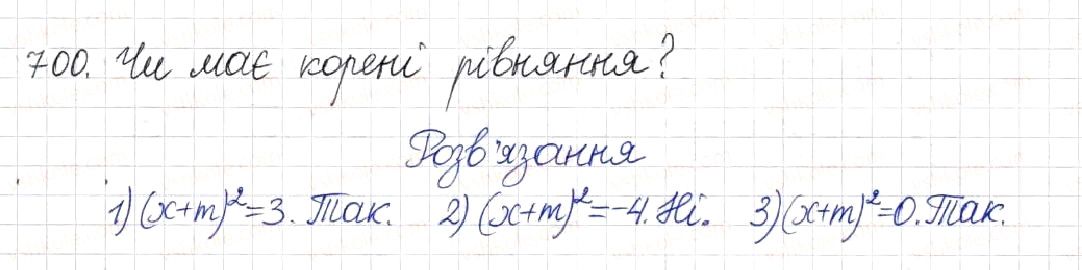 700. Чи має корені рівняння?
Розв'язання
1) (x+m)²=3. Так. 2) (x+m)²=-4. Ні. 3) (x+m)²=0. Так.